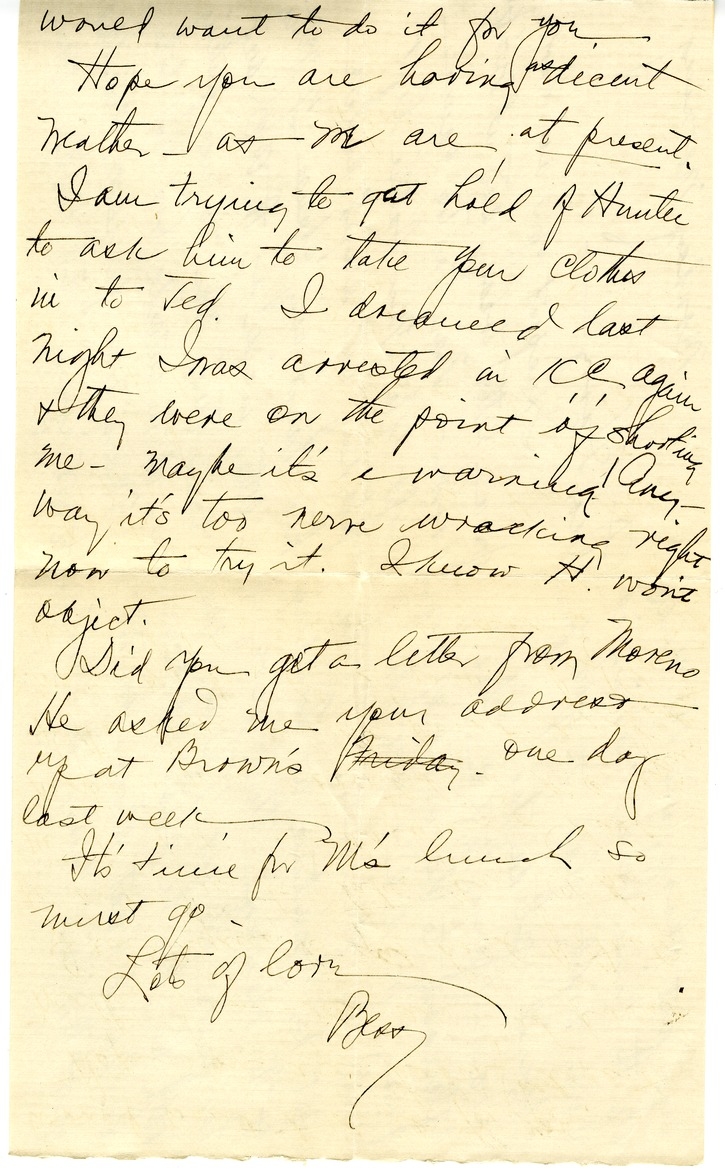 would want to do it for you
Hope you are having as decent
weather – as we are, at present.
I am trying to get hold of Hunter
to ask him to take your clothes
in to Ted. I dreamed last
night I was arrested in KC again
& they were on the point of shooting
me – maybe it's a warning! Any–
way it's too nerve wracking right
now to try it. I know H. won't
object.
Did you get a letter from Moreno
He asked me your address
up at Brown's Friday. one day
last week
It's time for M's lunch so
must go –
Lots of love
Bess